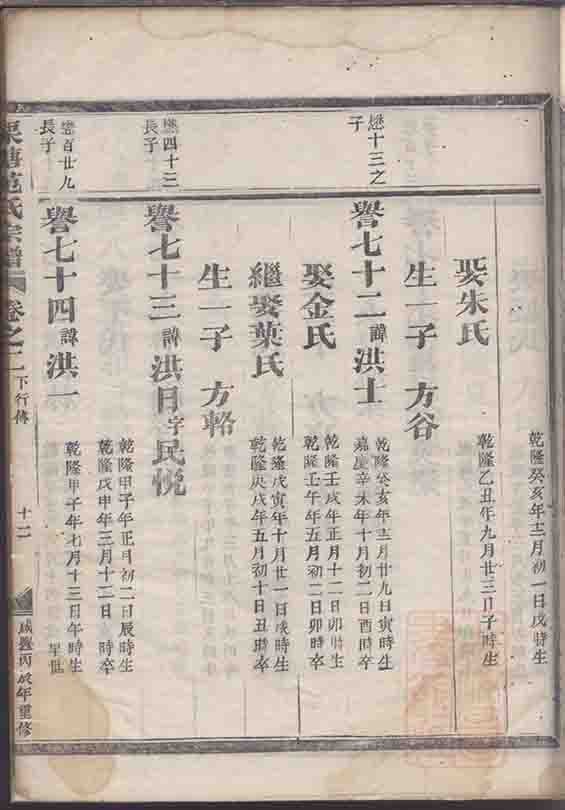 乾隆癸亥年十二月初一日戌時生
娶朱氏
乾隆乙丑年九月廿三日子時生
生一子 方谷
懋十三之
子
譽七十二 諱 洪士
乾隆癸亥年十二月廿九日寅時生
嘉慶辛未年十月初二日酉時卒
娶金氏
乾隆壬戌年正月十二日卯時生
乾隆壬午年五月初二日卯時卒
繼娶葉氏
乾隆戊寅年十月廿一日戌時生
乾隆庚戌年五月初十日丑時卒
生一子 方輅
懋四十三
長子
譽七十三 諱 洪目 字 民悅
乾隆甲子年正月初二日辰時生
乾隆戊申年三月十二日 時卒
懋百廿九
長子
譽七十四 諱 洪一
乾隆甲子年七月十三日午時生
早世
范氏宗譜 卷之二 下行傳
十二
咸豐丙辰年重修